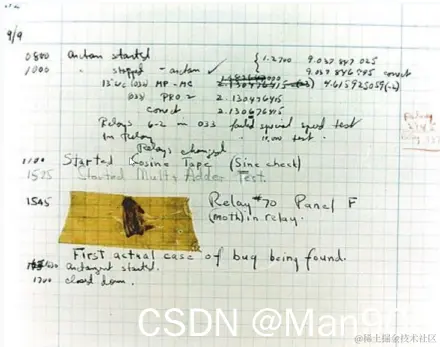 9/9
0800 antan started
1000 " stopped - antan ✓ { 1.2700 9.037 847 025
9.037 846 995 correct
13"uc (032) MP - MC 2.130476415 (-3) 4.615925059(-2)
(033) PRO 2 2.130476415
correct 2.130676415
Relays 6-2 in 033 failed special speed test
in relay " 11.000 test.
Relays changed
1100 Started Cosine Tape (Sine check)
1525 Started Mult+ Adder Test.
1545 Relay #70 Panel F
(moth) in relay.
First actual case of bug being found.
antangent started.
1700 closed down.
CSDN @Man9
@稀土掘金技术社区